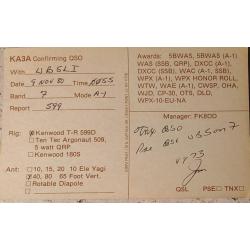 KA3A Confirming QSO
With UB5LI
Date 9 NOV 80 Time 0255
Band 7 Mode A-1
Report 599
Rig: Kenwood T-R 599D
Ten Tec Argonaut 509,
5 watt QRP
Kenwood 180S
Ant: 10, 15, 20 10 Ele Yagi
40, 80 65 Foot Vert.
Rotable Diapole
Awards: 5BWAS, 5BWAS (A-1)
WAS (SSB, QRP), DXCC (A-1)
DXCC (SSB), WAC (A-1, SSB),
WPX (A-1), WPX HONOR ROLL,
WTW, WAE (A-1), CWSP, OHA,
WJD, CP-30, OTS, DLD,
WPX-10-EU-NA
Manager: FK8DD
QSO
Pse QSL
VY 73
Jim
QSL PSE TNX